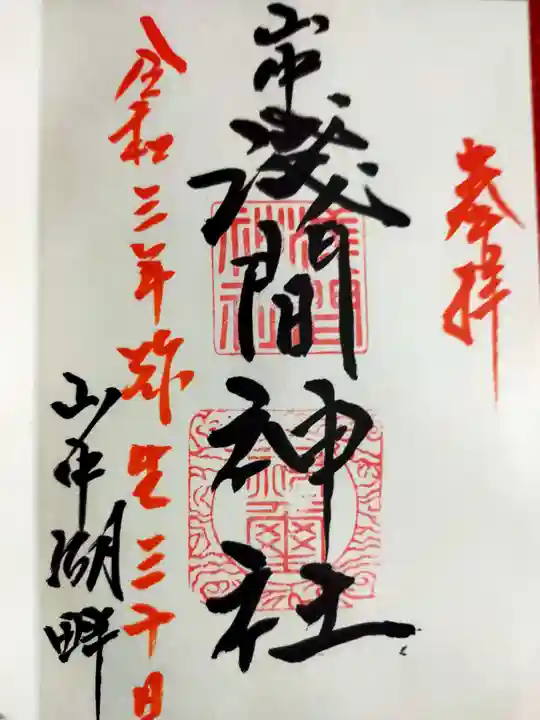 奉拝
山中
浅間神社
令和三年弥生三十日
山中湖畔